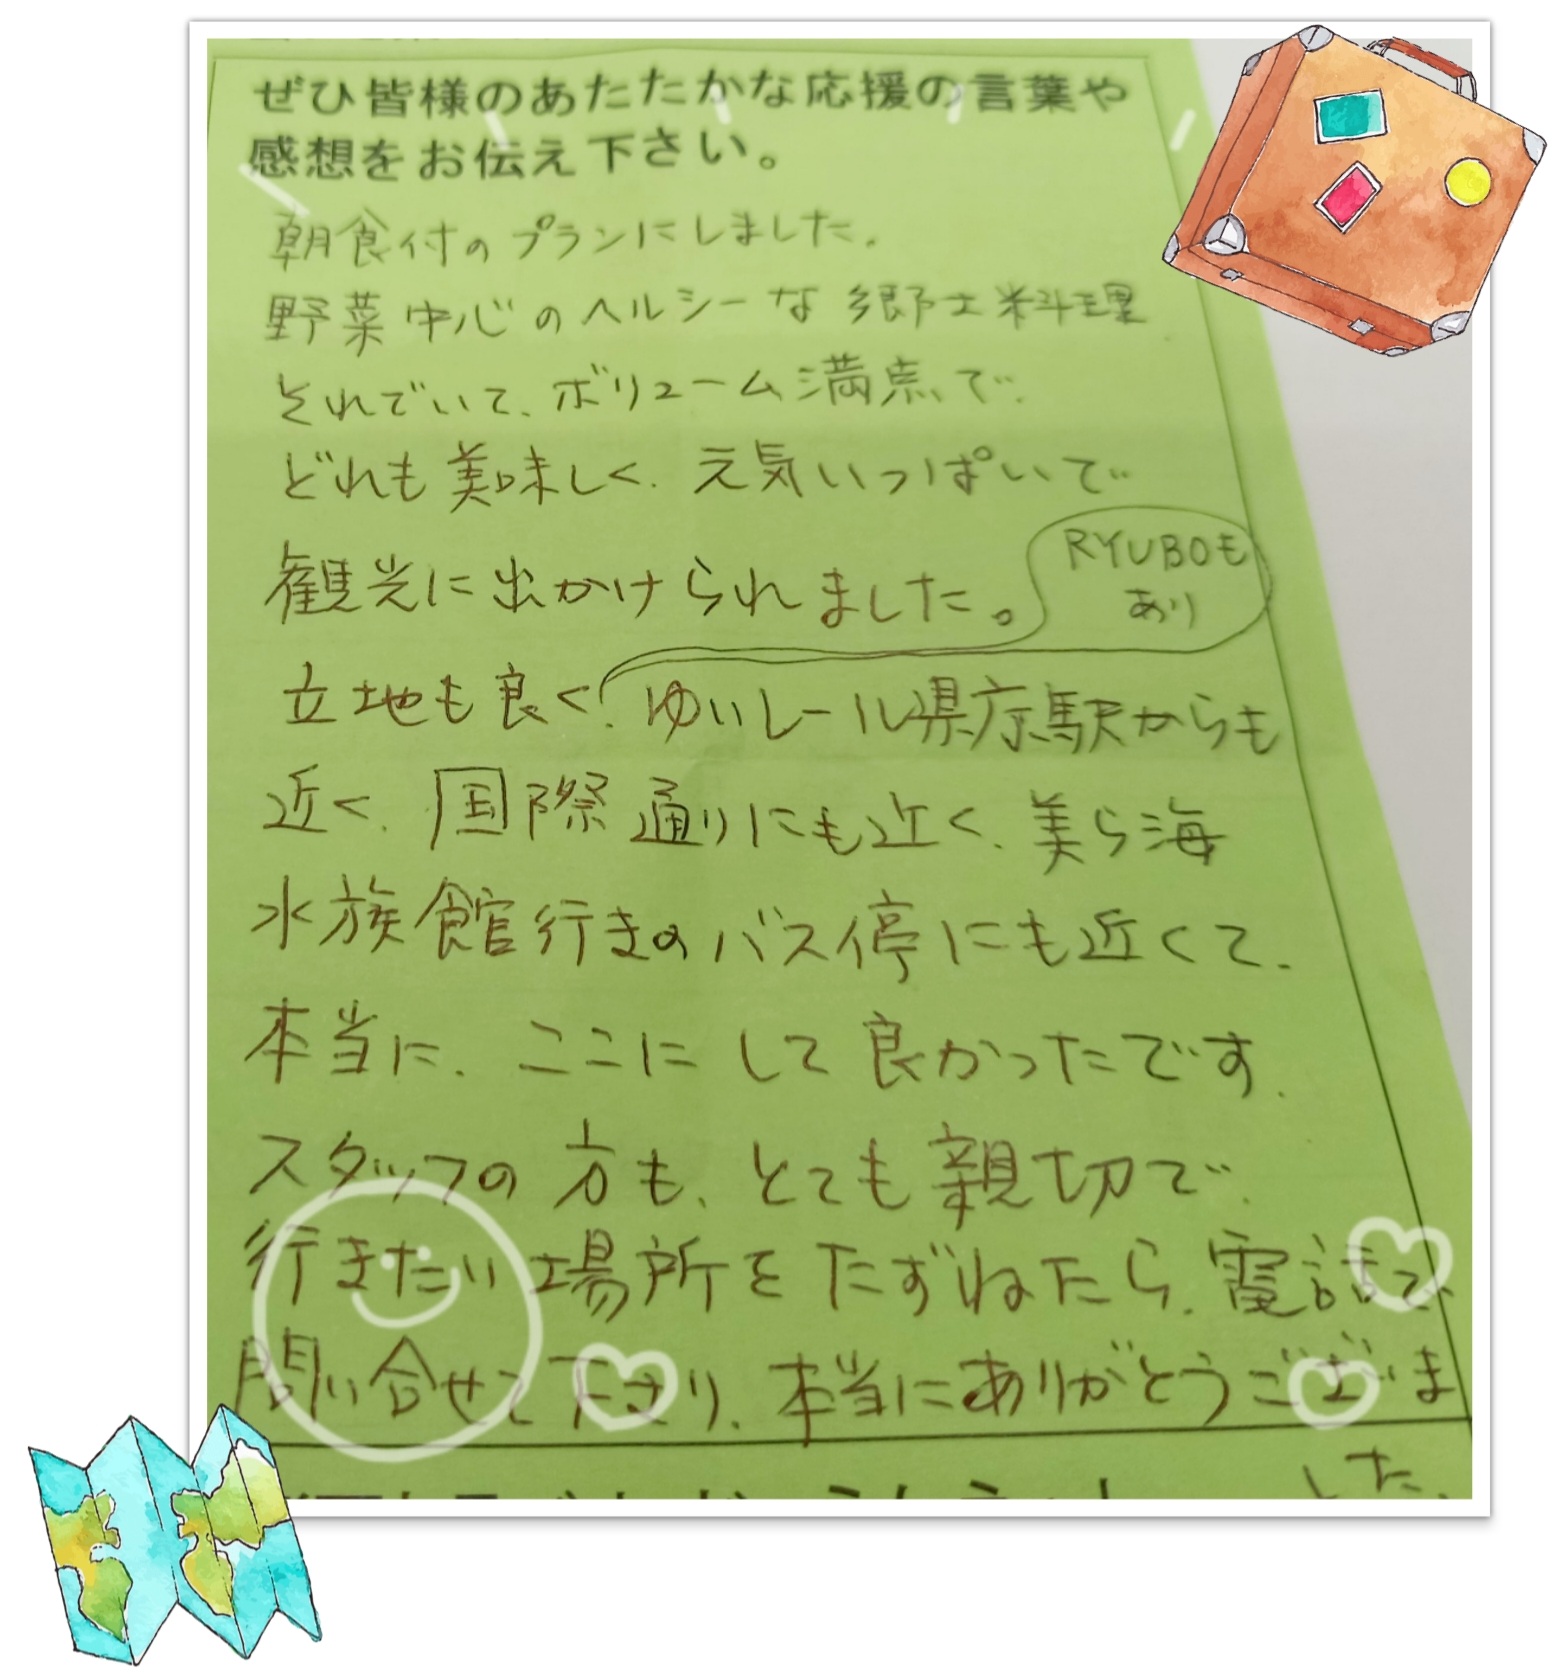 ぜひ皆様のあたたかな応援の言葉や
感想をお伝え下さい。
朝食付のプランにしました。
野菜中心のヘルシーな郷土料理
それでいて、ボリューム満点で、
どれも美味しく、元気いっぱいで
観光に出かけられました。
RYUBOも
あり
立地も良く、ゆいレール県庁駅からも
近く、国際通りにも近く、美ら海
水族館行きのバス停にも近くて、
本当に、ここにして良かったです。
スタッフの方も、とても親切で、
行きたい場所をたずねたら、電話で、
問い合せて下さり、本当にありがとうございま
した、